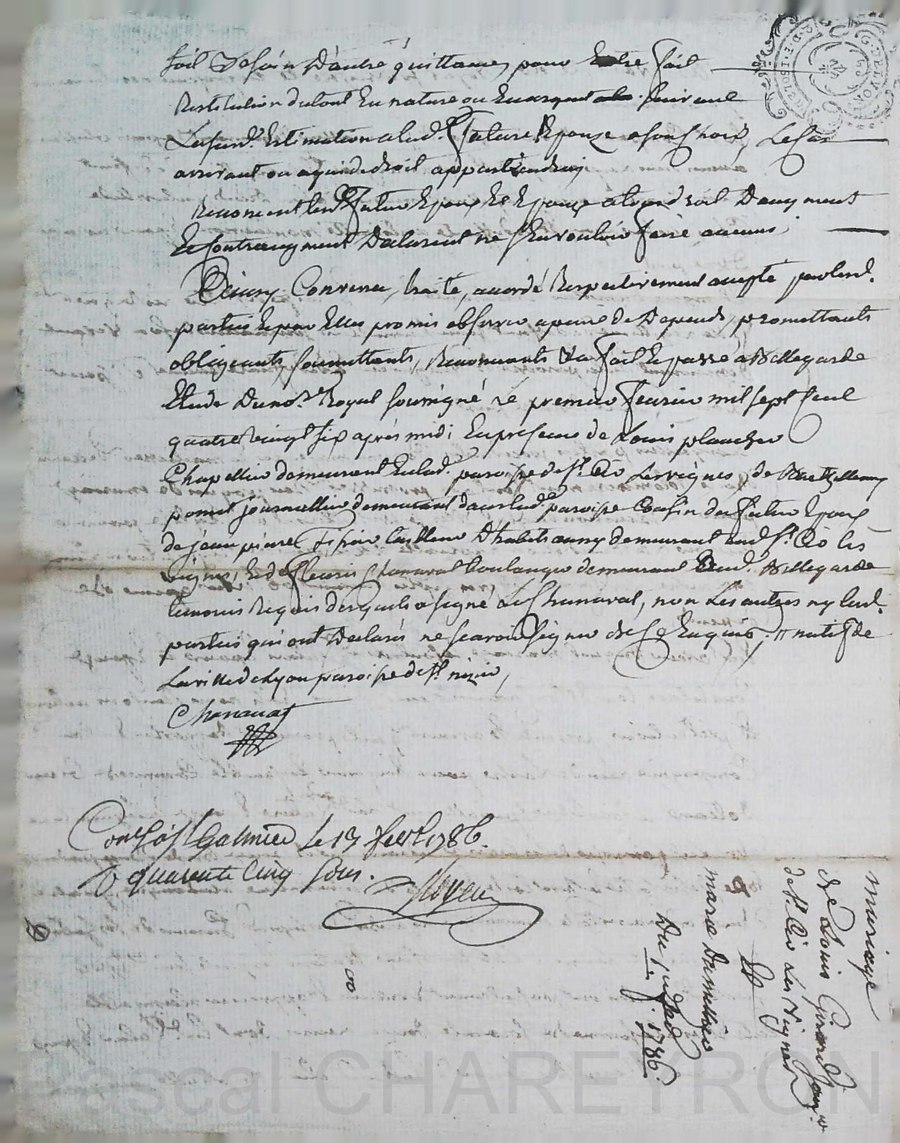 soit besoin d'autre quittance, pour Etre fait
Restitution du tout En nature ou En argent suivant
Lasusd. Estimation a lad. future Epouze a son choix, Le Cas
arrivant ou a qui de droit appartiendra,
Renoncent lesd. futur Epoux Et Epouze
Et declarent ne s'En vouloir faire aucuns;
Ainsy Convenu, traité, accordé Respectivement accepté par lesd.
parties Et par Elles promis observer a peine de Depends, promettants
obligeants, soumettants, Renonceants &a fait Et passé a Bellegarde
Etude Du no.re Royal soussigné Le premier fevrier mil sept cent
quatre vingt six après midi En presence de Louis plancher
Chapellier demeurant En lad. paroisse de st. Cir Les vignes, de Barthellemy
poncet journallier demeurant dans lad. paroisse Cousin du futur Epoux
de jean pierre tailleur D'habits aussy demeurant aud. st. Cir les
vignes, Et de fleury Chanavat boulanger demeurant aud. Bellegarde
temoins Requis desquels a signé Le Chanavat, non Les autres ny lesd.
parties qui ont Declarés ne scavoir signer de ce Enquis. natif de
La ville de Lyon paroisse de st. nizier,
Chanavat
Con.lé a st Galmier Le 13 fevr. 1786.
R quarente Cinq sous.
mariage
de Louis Girard
de st. Cir Les Vignes
&
marie
Du 1.er fev. 1786.
Pascal CHAREYRON